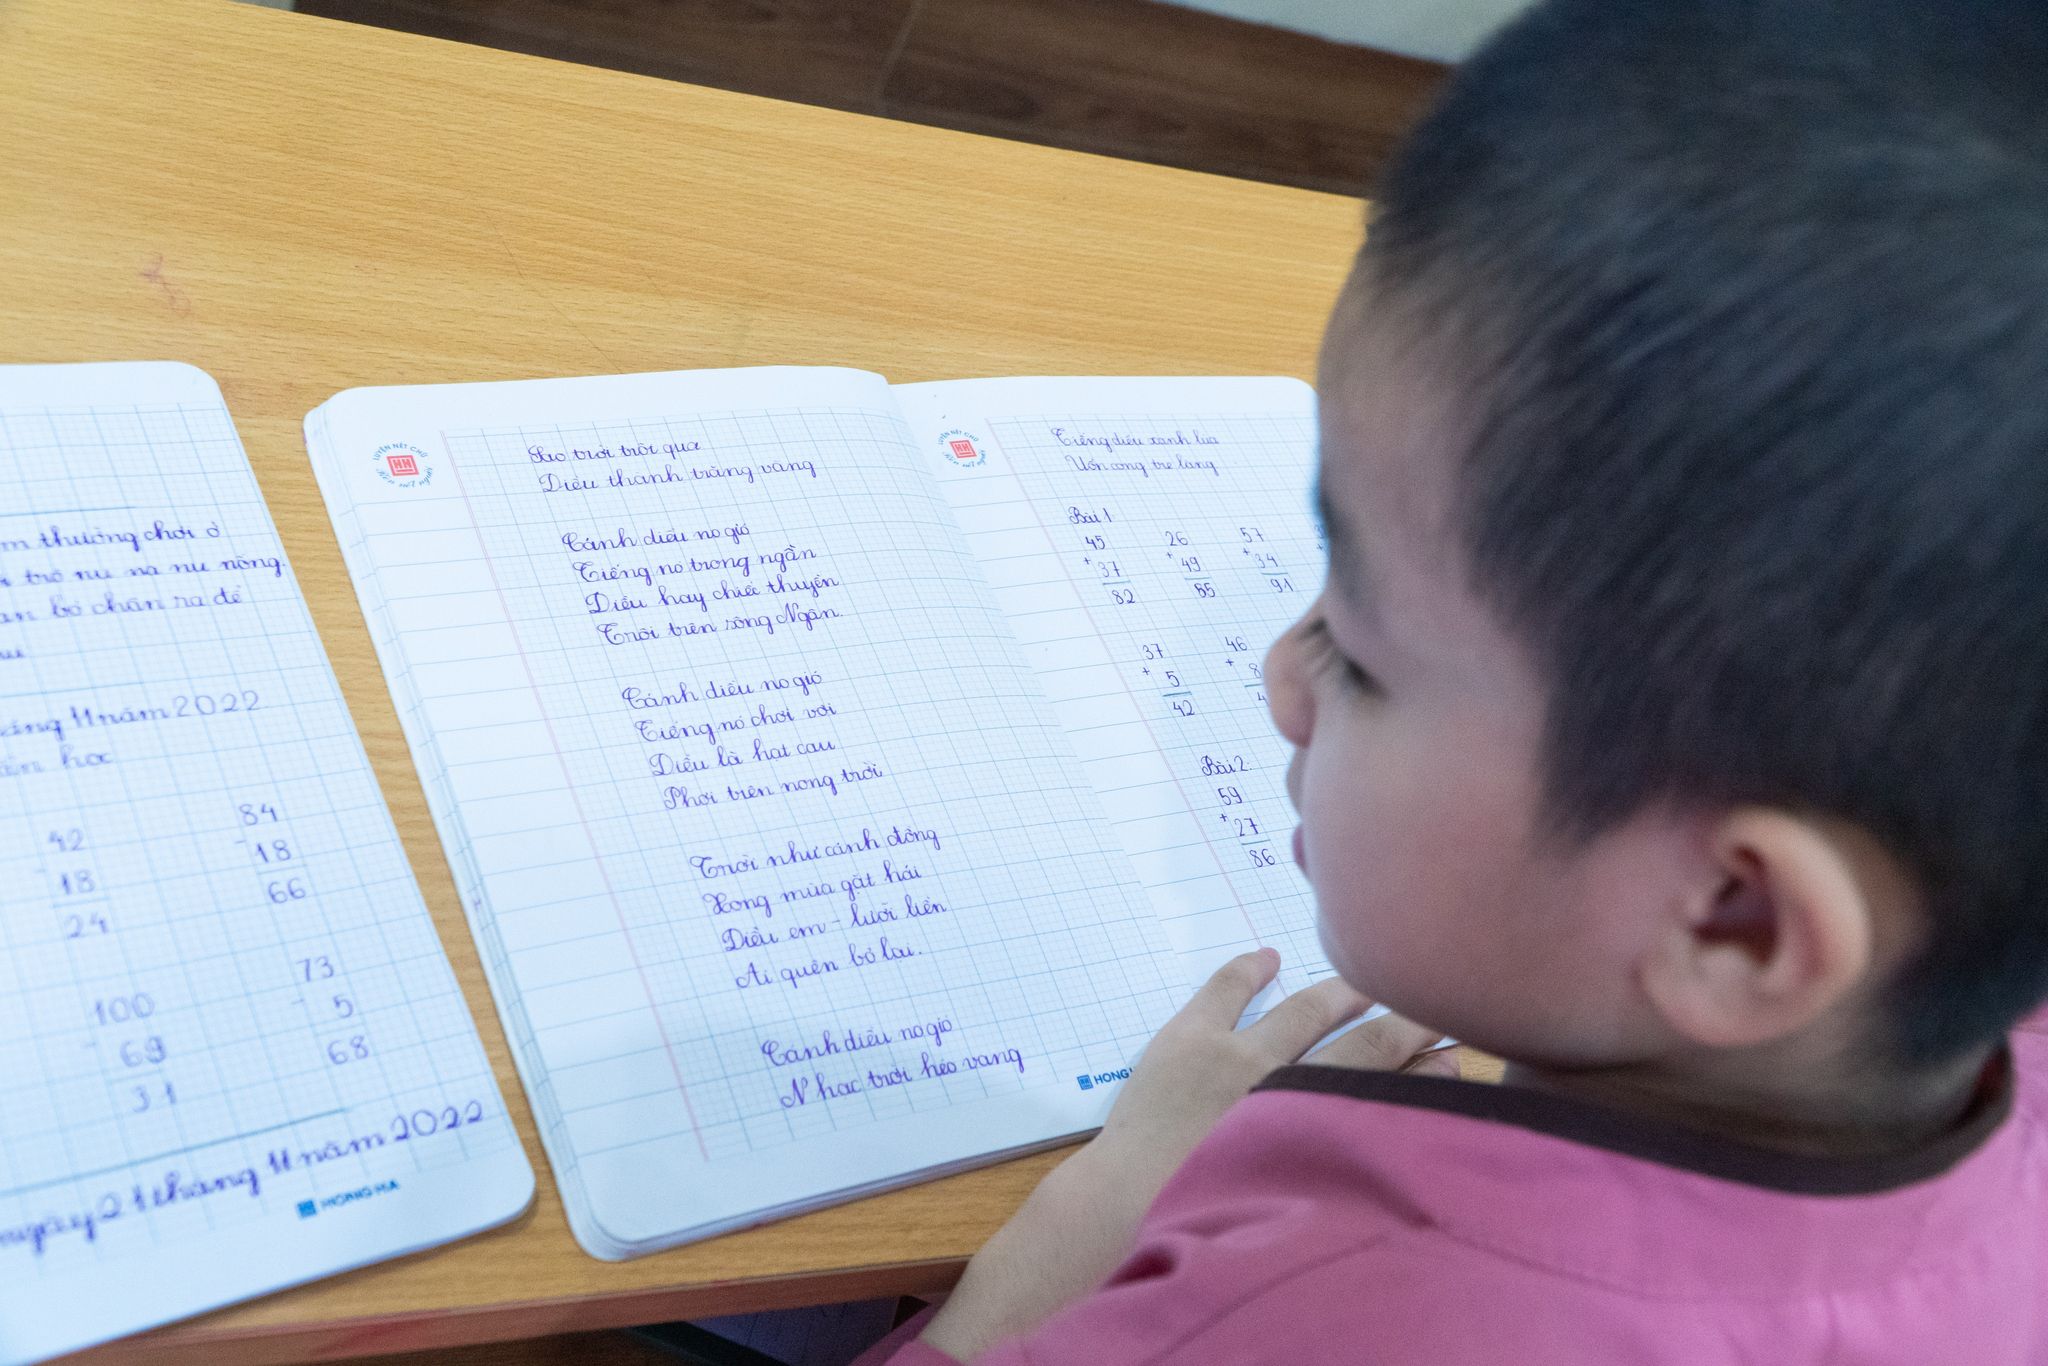 m thường chơi ở
trò nu na nu nống.
bỏ chân ra để
11 năm 2022
học
42
- 18
24
84
- 18
66
100
- 69
31
73
- 5
68
ngày 21 tháng 11 năm 2022
HONG HA
LUYỆN NÉT CHỮ
RÈN NẾT NGƯỜI
HH
Sao trời trôi qua
Diều thành trăng vàng
Cánh diều no gió
Tiếng nó trong ngần
Diều hay chiếc thuyền
Trôi trên sông Ngân.
Cánh diều no gió
Tiếng nó chơi vơi
Diều là hạt cau
Phơi trên nong trời
Trời như cánh đồng
Xong mùa gặt hái
Diều em - lưỡi liềm
Ai quên bỏ lại.
Cánh diều no gió
Nhạc trời réo vang
HONG
LUYỆN NÉT CHỮ
RÈN NẾT NGƯỜI
HH
Tiếng diều xanh lúa
Uốn cong tre làng
Bài 1
45
+ 37
82
26
+ 49
85
57
+ 34
91
37
+ 5
42
46
+ 8
4
Bài 2:
59
+ 27
86